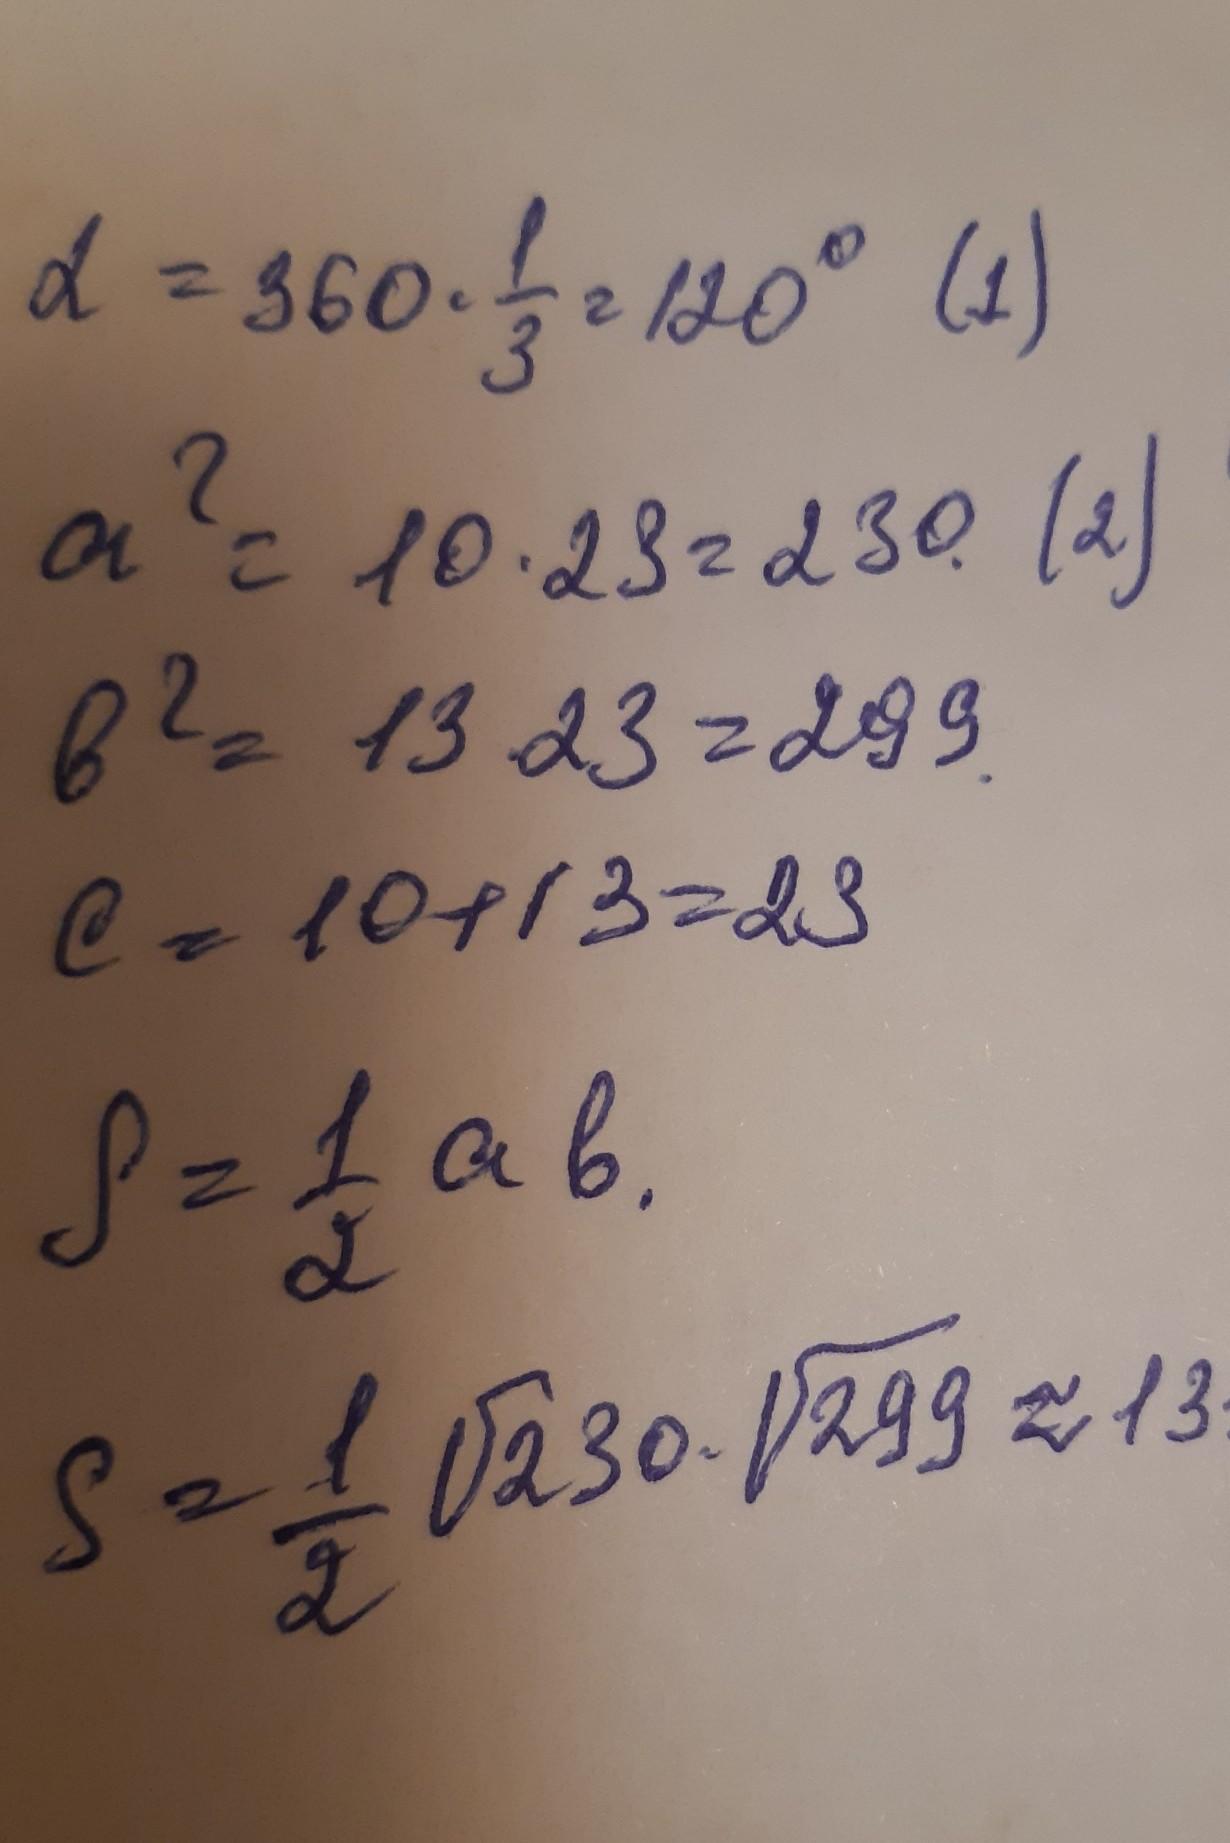 α = 360 · 1/3 = 120° (1)
a² = 10 · 23 = 230. (2)
b² = 13 · 23 = 299.
c = 10 + 13 = 23
S = 1/2 a b.
S = 1/2 √230 · √299 ≈ 13